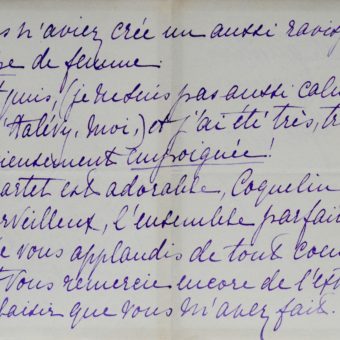 s n'aviez crée un aussi ravis
pe de femme.
t puis, (je ne suis pas aussi calm
'Halévy, moi,) et j'ai été très, tr
ieusement empoignée!
artet est adorable, Coquelin
erveilleux, l'ensemble parfait
e vous applaudis de tout coeu
t vous remercie encore de l'ext
laisir que vous m'avez fait.